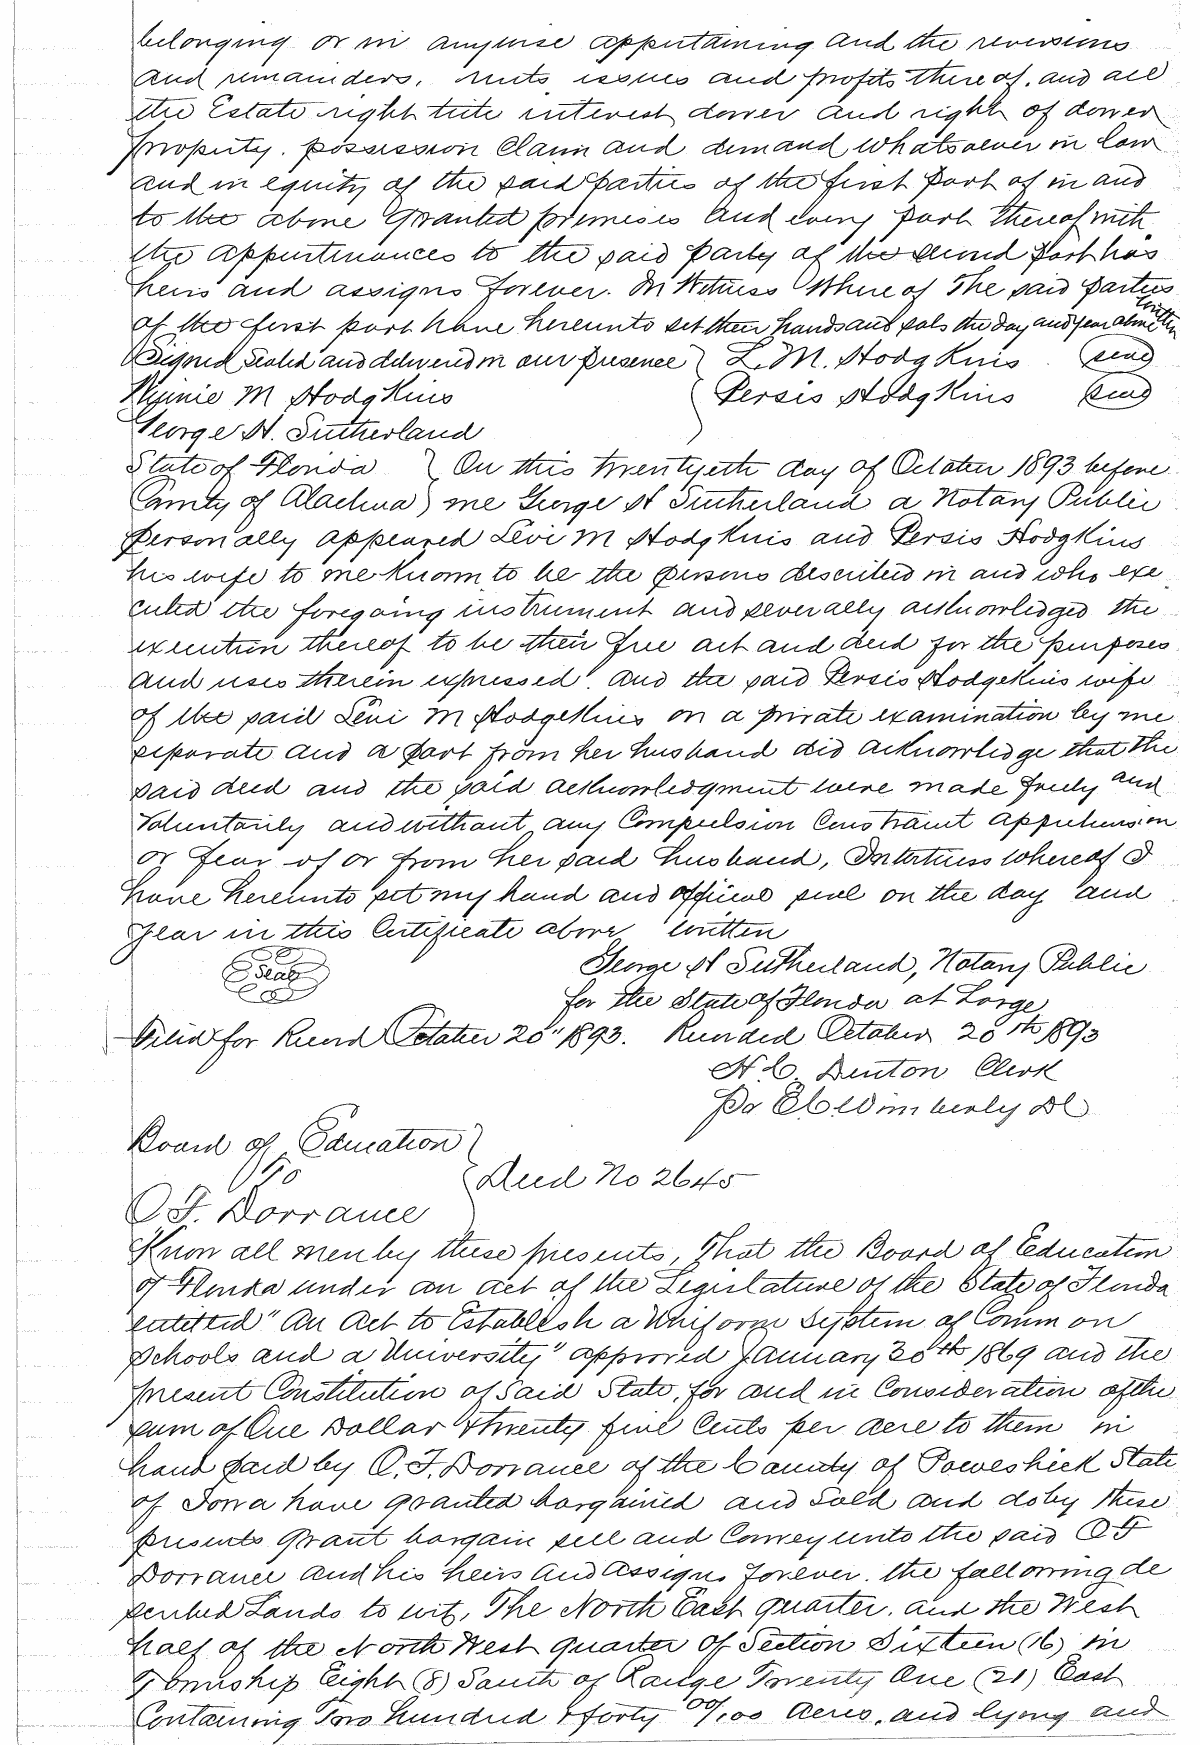 belonging or in anywise appurtaining and the reversions
and remainders, rents, issues and profits thereof. and all
the Estate right title interest dower and right of dower
property. possession Claim and demand whatsoever in law
and in equity of the said parties of the first part of in and
to the above Granted premises and every part thereof with
the appurtinances to the said party of the second part his
heirs and assigns forever. In Witness Where of The said parties
of the first part have hereunto set their hands and seals the day and year above written
Signed Sealed and delivered in our presence } L. M. Hodgkins (seal)
Minnie M Hodgkins } Persis Hodgkins (seal)
George H. Sutherland
State of Florida } On this twentyeth day of October 1893 before
County of Alachua } me George H Sutherland a Notary Public
personally appeared Levi M Hodgkins and Persis Hodgkins
his wife to me known to be the persons described in and who exe
cuted the foregoing instrument and severally acknowledged the
execution thereof to be their free act and deed for the purposes
and uses therein expressed. And the said Persis Hodgekins wife
of the said Levi M Hodgekins on a private examination by me
separate and a part from her husband did acknowledge that the
said deed and the said acknowledgment were made freely and
Voluntarily and without any Compulsion Constraint apprehension
or fear of or from her said husband, In witness whereof I
have hereunto set my hand and official seal on the day and
year in this Certificate above written
(Seal) George H Sutherland, Notary Public
for the State of Florida at Large
Filed for Record October 20" 1893. Recorded October 20th 1893
H. C. Denton Clerk
Pr E C Wimberly DC
Board of Education }
To } Deed No 2645
O. F. Dorrance
Know all men by these presents, That the Board of Education
of Florida under an act of the Legislature of the State of Florida
entitled "An Act to Establish a Uniform System of Common
Schools and a University" approved January 30th 1869 and the
present Constitution of Said State, for and in Consideration of the
sum of One Dollar & twenty five Cents per acre to them in
hand paid by O. F. Dorrance of the County of Poweshiek State
of Iowa have granted bargained and Sold and do by these
presents grant bargain sell and Convey unto the said O F
Dorrance and his heirs and assigns forever. the following de
scribed Lands to wit, The North East quarter. and the West
half of the North West quarter of Section Sixteen (16) in
Township Eight (8) South of Range Twenty One (21) East
Containing Two hundred & forty 00/100 Acres, and lying and